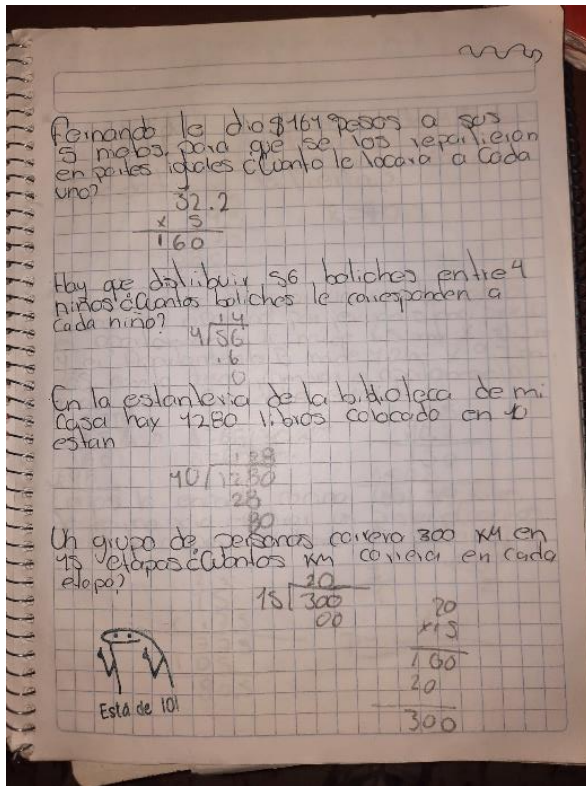 Fernando le dio $161 pesos a sus
5 metos. para que se los repartieran
en partes iguales ¿Cuanto le tocara a Cada
uno?
32.2
x 5
160
Hay que distribuir 56 boliches entre 4
niños ¿Cuantos boliches le corresponden a
Cada niño?
14
4/56
.6
0
En la estanteria de la biblioteca de mi
Casa hay 1280 libros colocado en
estan
40/1280
28
80
Un grupo de personas correra 300 KM en
15 etapas ¿Cuantos KM correra en cada
etapa?
20
15/300
00
20
x15
100
20
300
Está de 10!